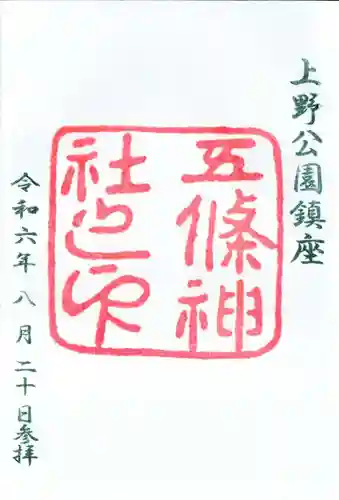 上野公園鎮座
五條神
社之印
令和六年八月二十日参拝